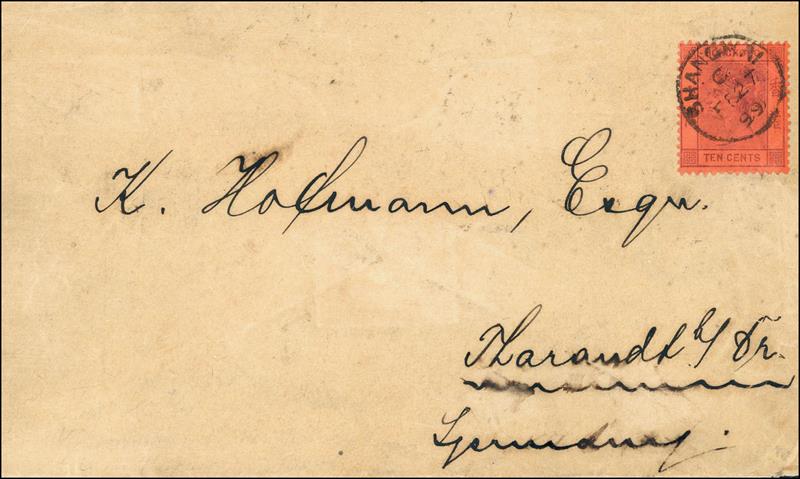 SHANGHAI
99
TEN CENTS
K. Hofmann, Esqr.
Tharandt b/ Dr.
Germany.